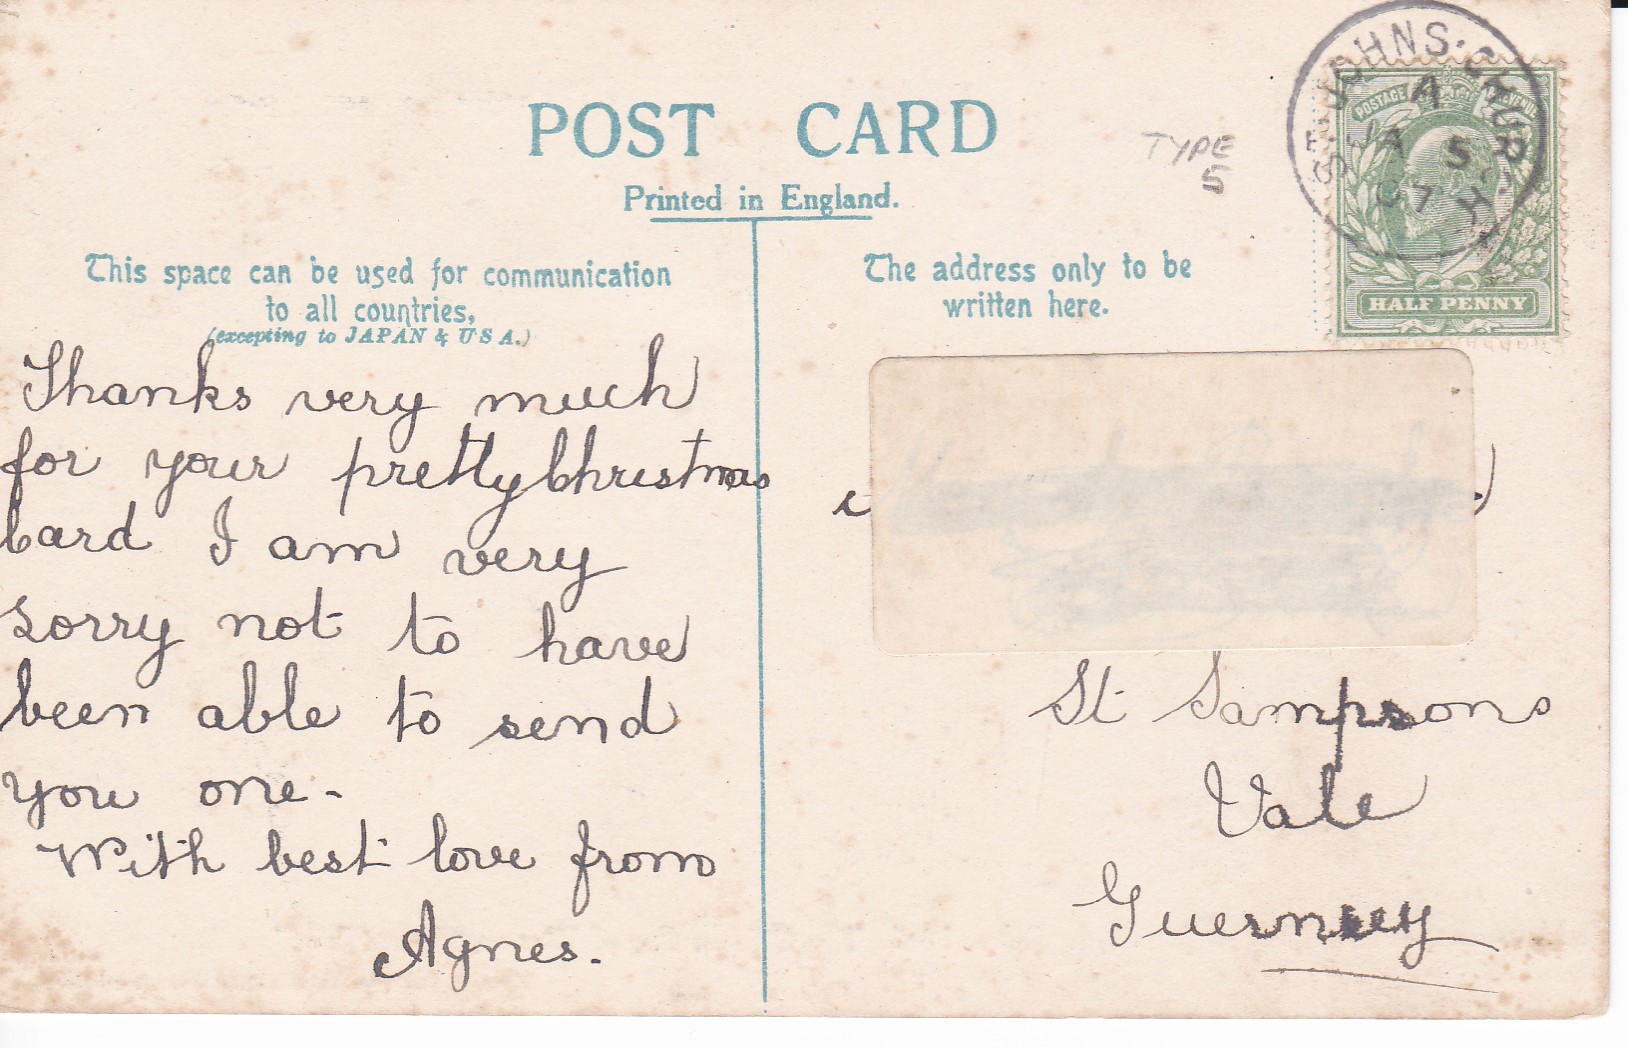 POST CARD
Printed in England.
This space can be used for communication
to all countries,
(excepting to JAPAN & U S A.)
Thanks very much
for your pretty Christmas
Card I am very
sorry not to have
been able to send
you one-
With best love from
Agnes.
TYPE
5
ST. JOHNS. CHURCH
A
JA 5
07
POSTAGE REVENUE
HALF PENNY
The address only to be
written here.
St Sampsons
Vale
Guernsey